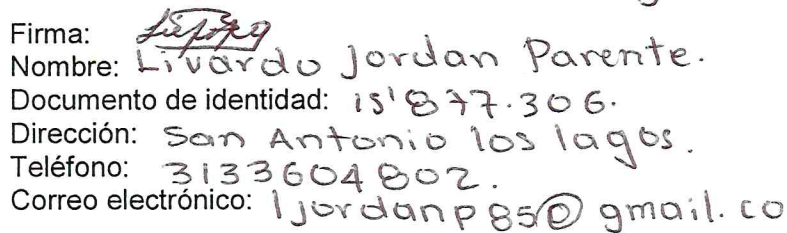 Firma:
Nombre: Livardo Jordan Parente.
Documento de identidad: 15'877.306.
Dirección: San Antonio los lagos.
Teléfono: 3133604802.
Correo electrónico: ljordanp85@gmail.co